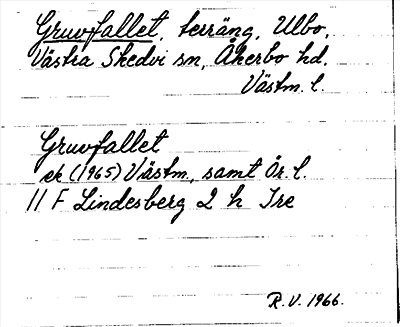 Gruvfallet, terräng, Ulbo,
Västra Skedvi sn, Åkerbo hd.
Västm. l.
Gruvfallet
ek (1965) Västm., samt Ör. l.
11 F Lindesberg 2 h Tre
R.V. 1966.